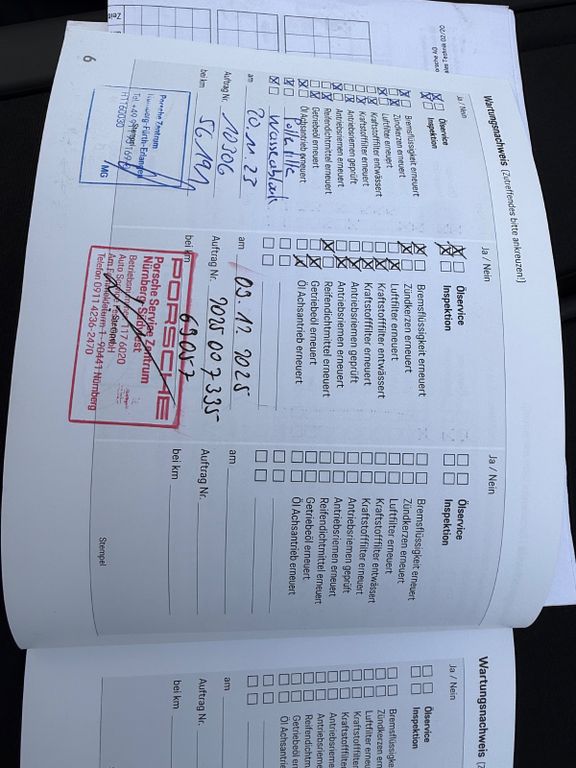 Wartungsnachweis (Zutreffendes bitte ankreuzen!)
Ja / Nein
Ölservice
Inspektion
Bremsflüssigkeit erneuert
Zündkerzen erneuert
Luftfilter erneuert
Kraftstofffilter entwässert
Kraftstofffilter erneuert
Antriebsriemen geprüft
Antriebsriemen erneuert
Reifendichtmittel erneuert
Getriebeöl erneuert
Öl Achsantrieb erneuert
am 20.11.23
Auftrag Nr. 10306
bei km 56191
Porsche Zentrum
Nürnberg-Fürth-Erlangen
6
Ja / Nein
Ölservice
Inspektion
Bremsflüssigkeit erneuert
Zündkerzen erneuert
Luftfilter erneuert
Kraftstofffilter entwässert
Kraftstofffilter erneuert
Antriebsriemen geprüft
Antriebsriemen erneuert
Reifendichtmittel erneuert
Getriebeöl erneuert
Öl Achsantrieb erneuert
am 09.12.2025
Auftrag Nr. 2025 007335
bei km 69057
PORSCHE
Porsche Service Zentrum
Telefon 0911 4236-2470
Ja / Nein
Ölservice
Inspektion
Bremsflüssigkeit erneuert
Zündkerzen erneuert
Luftfilter erneuert
Kraftstofffilter entwässert
Kraftstofffilter erneuert
Antriebsriemen geprüft
Antriebsriemen erneuert
Reifendichtmittel erneuert
Getriebeöl erneuert
Öl Achsantrieb erneuert
am
Auftrag Nr.
bei km
Stempel
Wartungsnachweis
Ja / Nein
Ölservice
Inspektion
Bremsflüssigkeit
Zündkerzen erneuert
Luftfilter erneuert
Getriebeöl erneuert
am
Auftrag Nr.
bei km